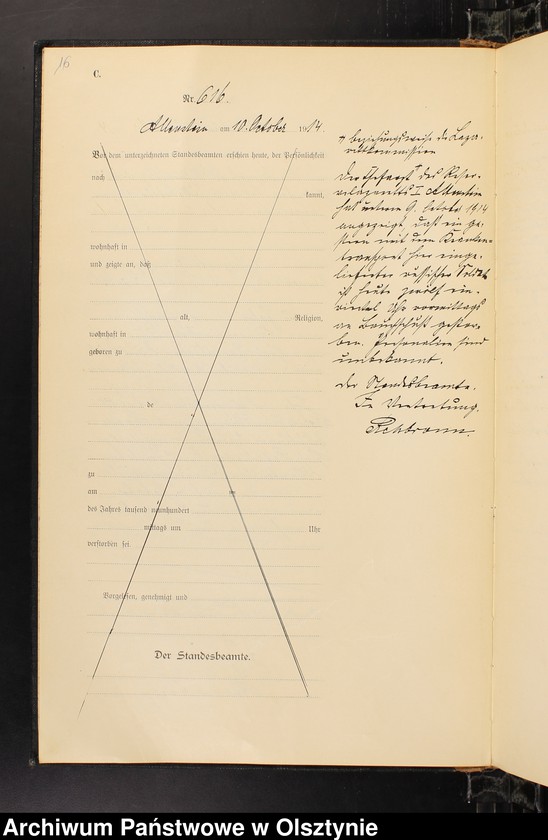 16
C.
Nr. 616.
Allenstein am 10. October 1914.
Vor dem unterzeichneten Standesbeamten erschien heute, der Persönlichkeit
nach
kannt,
wohnhaft in
und zeigte an, daß
alt, Religion,
wohnhaft in
geboren zu
de
zu
am
des Jahres tausend neunhundert
mittags um Uhr
verstorben sei.
Vorgelesen, genehmigt und
Der Standesbeamte.
beziehungsweise die Laza-
rettkommission
Der des Reser-
velazaretts I Allenstein
hat unterm 9. October 1914
angezeigt, daß ein ge-
stern mit dem Kranken-
transport hier einge-
lieferter russischer Soldat
ist heute zwölf ein
viertel Uhr vormittags
an Bauchschuß gestor-
ben. Personalien sind
unbekannt.
Der Standesbeamte.
In Vertretung.
Archiwum Państwowe w Olsztynie